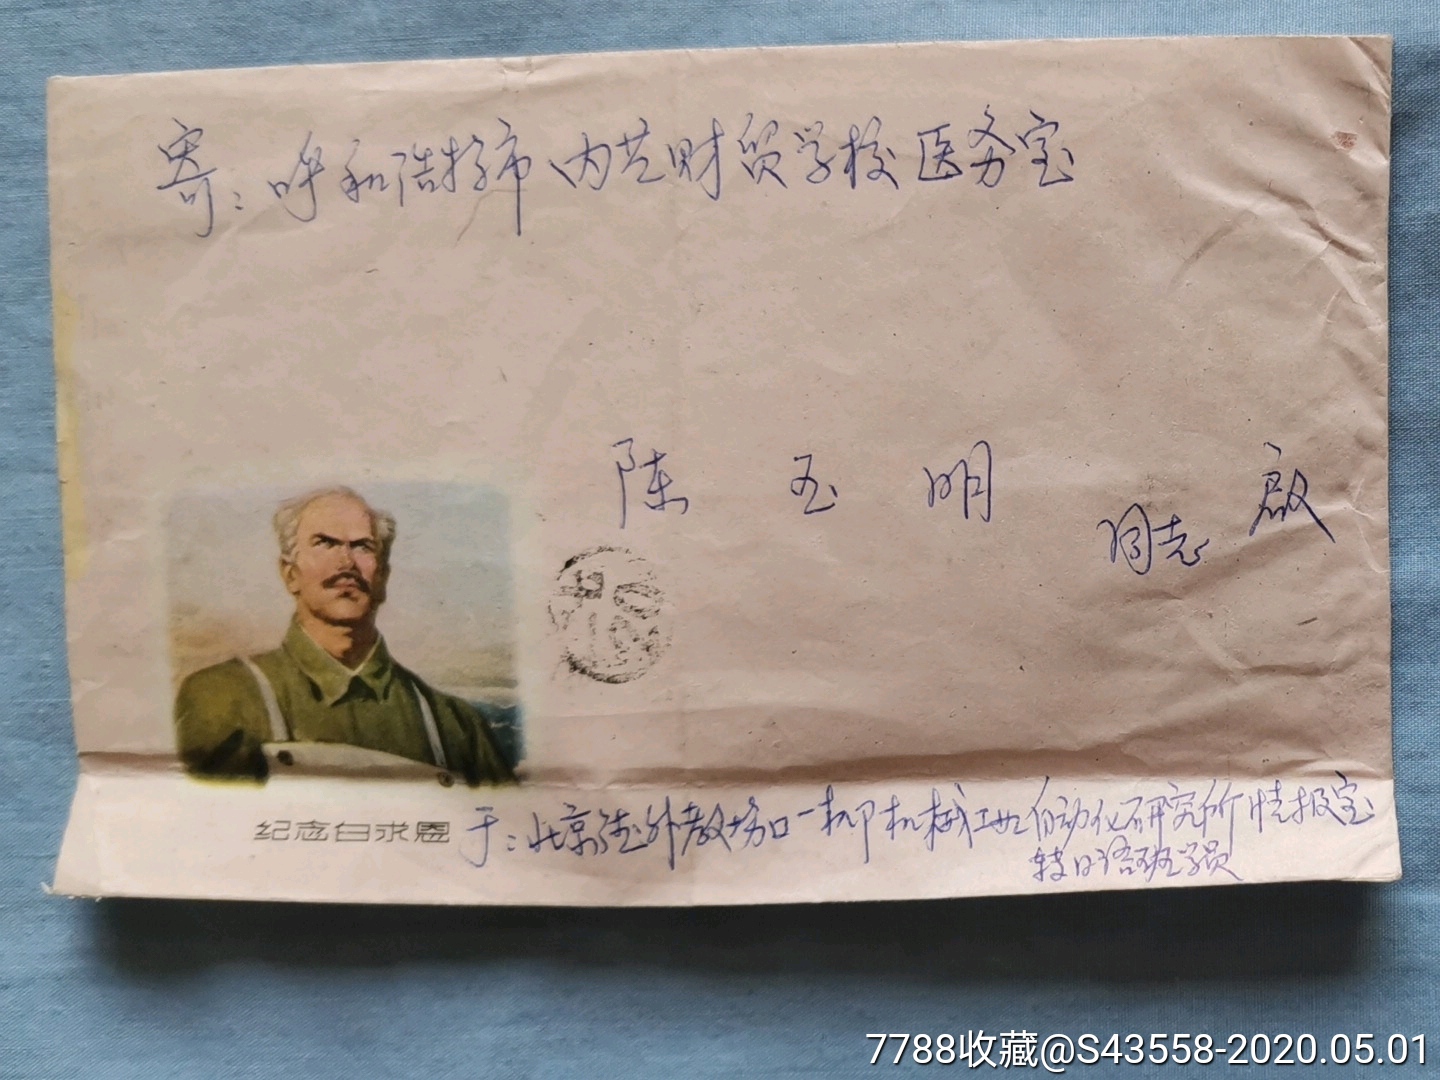 寄：呼和浩特市内蒙财贸学校医务室
陈玉明 同志 启
纪念白求恩
于：北京德外教场口一机部机械工业自动化研究所情报室
转日语班学员
7788收藏@S43558-2020.05.01